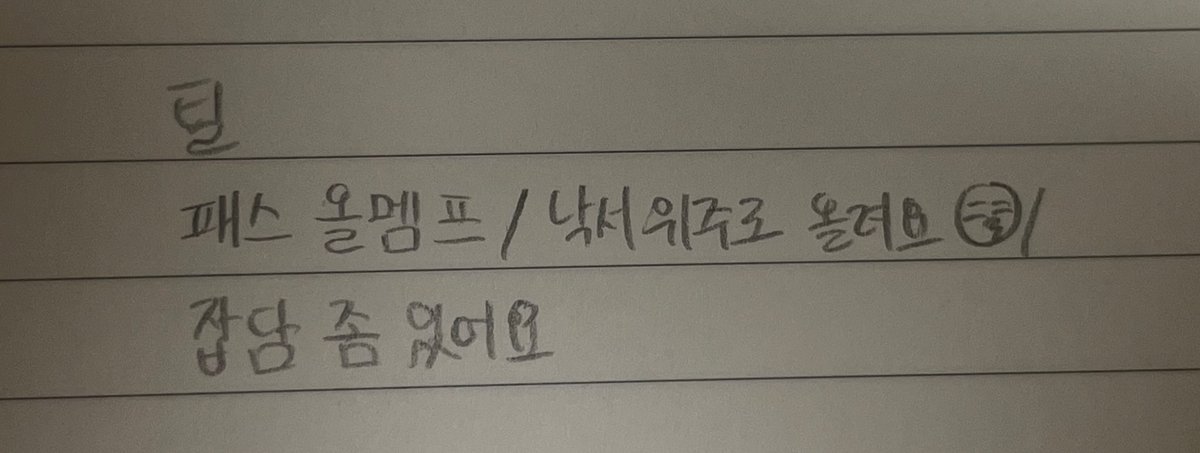 틸
패스 올멤프 / 낙서위주로 올려요 /
잡담 좀 있어요